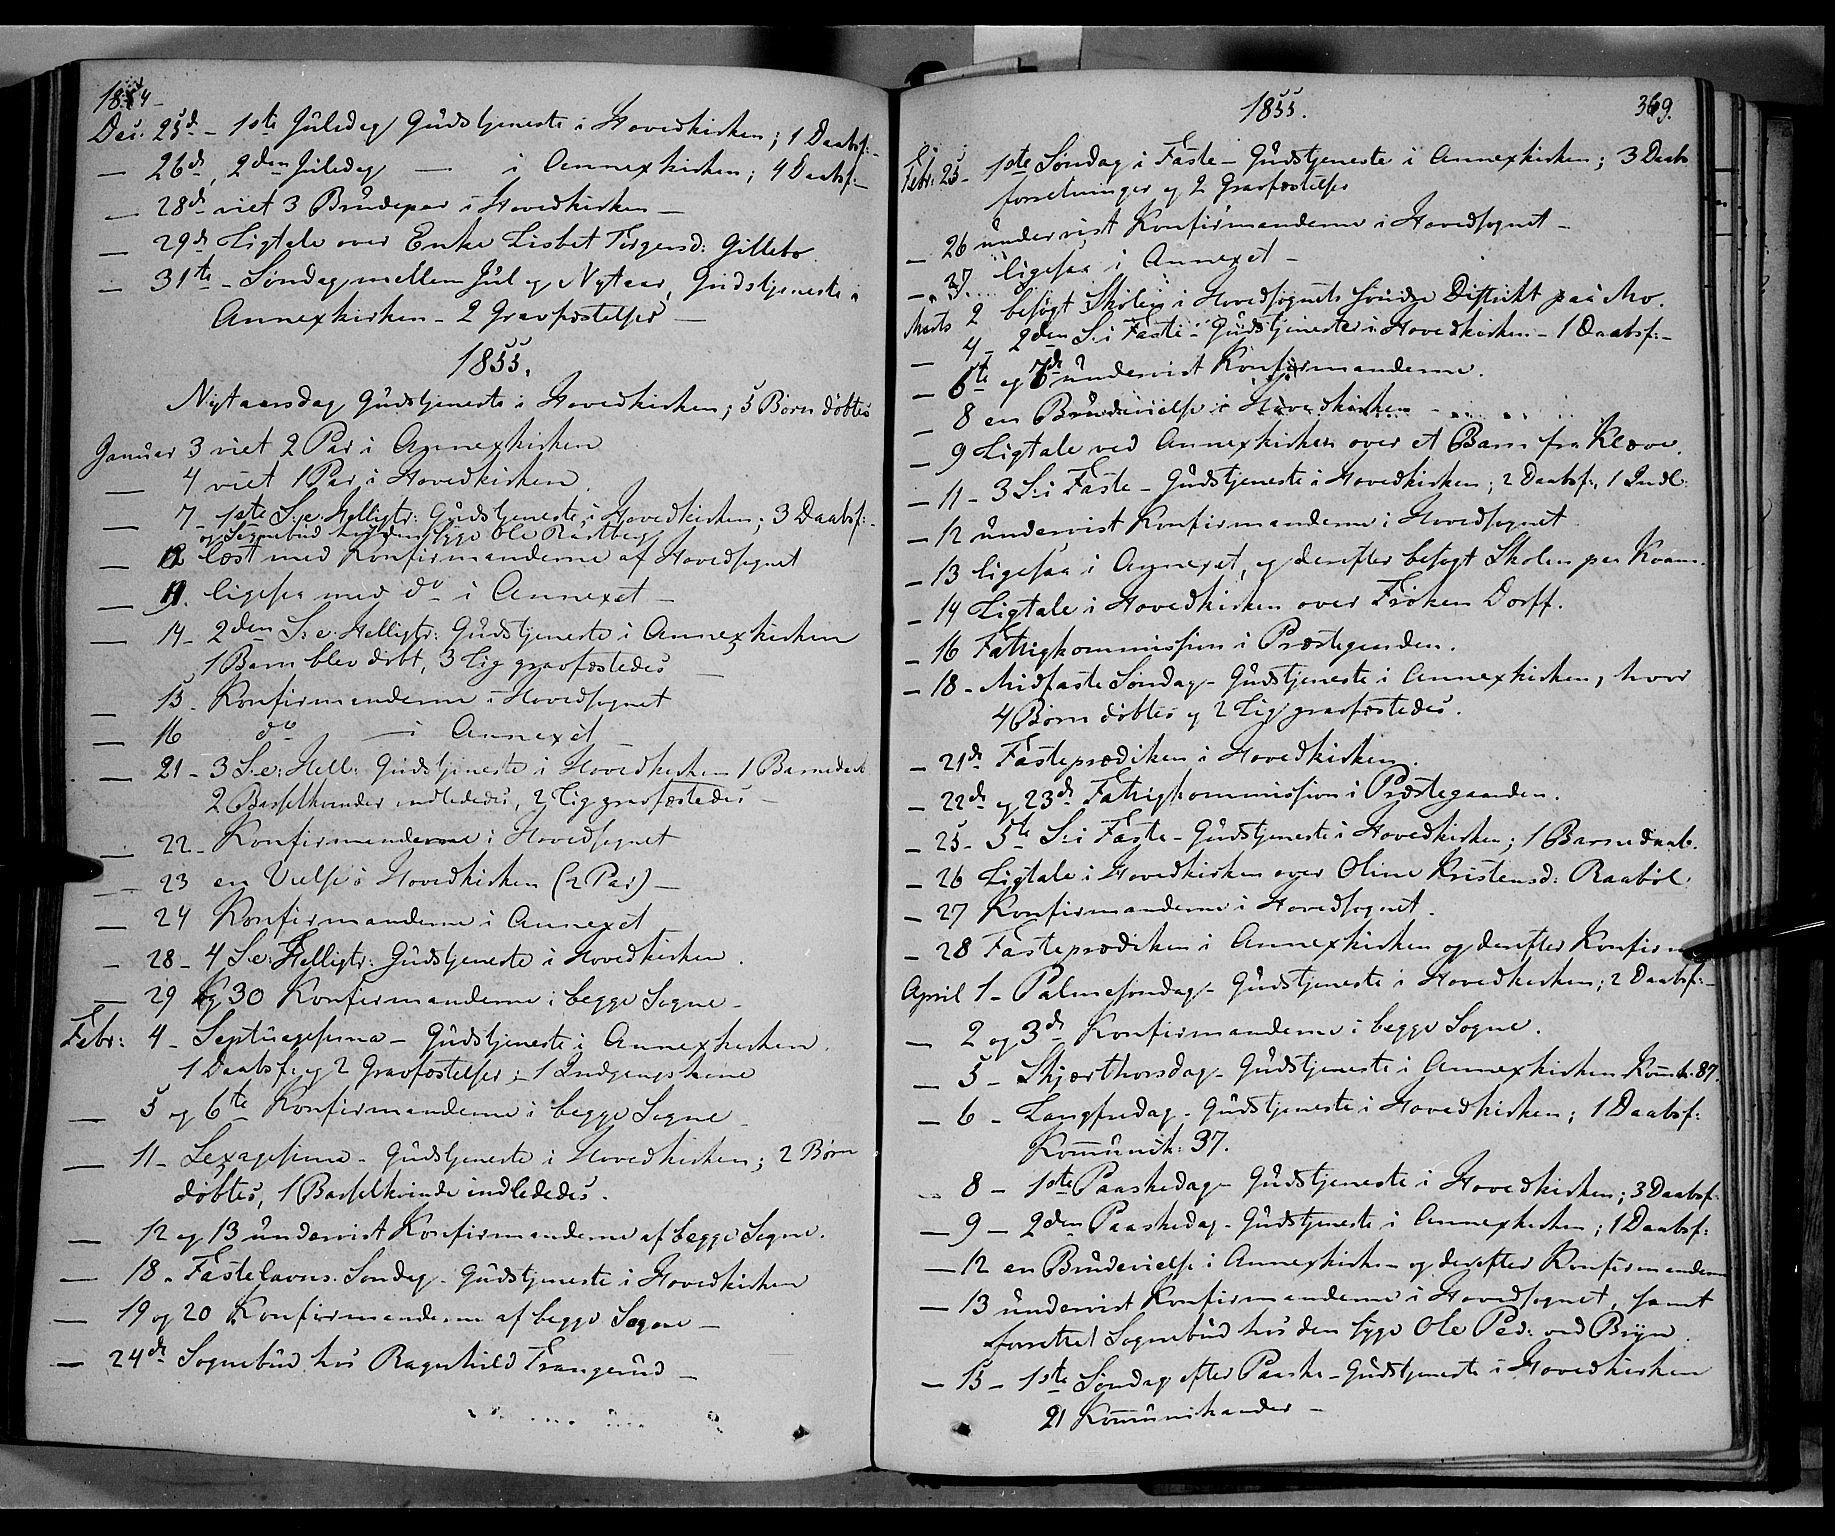 1854 -
Dec. 25d - 1ste Juledag Gudstjeneste i Hovedkirken; 1 Daabsf:
— 26d, 2den Juledag — i Annexkirken; 4 Daabsf:
— 28d viet 3 Brudepar i Hovedkirken —
— 29d Ligtale over Enke Lisbet Gillebo.
— 31te - Søndag mellem Jul og Nytaar, Gudstjeneste i
Annexkirken - 2 Gravfæstelser —
1855.
Nytaarsdag Gudstjeneste i Hovedkirken; 5 Børn døbtes
Januar 3 viet 2 Par i Annexkirken
— 4 viet 1 Par i Hovedkirken.
— 7 - 1ste S: e: Helligtr: Gudstjeneste i Hovedkirken; 3 Daabsf:
og Sognebud hos den syge Ole
— læst med Konfirmanderne af Hovedsognet
— ligesaa med do i Annexet —
— 14 - 2den S: e: Helligtr: Gudstjeneste i Annexkirken
1 Barn blev døbt, 3 Lig gravfæstedes —
— 15 - Konfirmanderne i Hovedsognet
— 16 do — i Annexet —
— 21 - 3 S: e: Hell: Gudstjeneste i Hovedkirken 1 Barnedaab
2 Barselkvinder indlededes, 2 Lig gravfæstedes —
— 22 - Konfirmanderne i Hovedsognet
— 23 en Vielse i Hovedkirken (2 Par) —
— 24 Konfirmanderne i Annexet
— 28 - 4 S: e: Helligtr: Gudstjeneste i Hovedkirken.
— 29 og 30 Konfirmanderne i begge Sogne -
Febr: 4 - Septuagesima - Gudstjeneste i Annexkirken.
1 Daabsf: og 2 Gravfæstelser; 1 Indgangskone
— 5 og 6te Konfirmanderne i begge Sogne -
— 11 - Sexagesima - Gudstjeneste i Hovedkirken; 2 Børn
døbtes, 1 Barselkvinde indlededes.
— 12 og 13 undervist Konfirmanderne af begge Sogne.
— 18 - Fastelavns-Søndag - Gudstjeneste i Hovedkirken
— 19 og 20 Konfirmanderne af begge Sogne —
— 24d Sognebud hos Ragnhild Trangerud —
1855.
369.
Febr: 25 - 1ste Søndag i Faste - Gudstjeneste i Annexkirken; 3 Daabs
forretninger og 2 Gravfæstelser
— 26 undervist Konfirmanderne i Hovedsognet -
— 27 ligesaa i Annexet -
Marts 2 besøgt Skolen i Hovedsognets søndre Distrikt paa Mo.
— 4 - 2den S: i Faste - Gudstjeneste i Hovedkirken - 1 Daabsf: -
— 6te og 7de undervist Konfirmanderne.
— 8 en Brudevielse i Hovedkirken -
— 9 Ligtale ved Annexkirken over et Barn fra Kløve.
— 11 - 3 S: i Faste - Gudstjeneste i Hovedkirken; 2 Daabsf:, 1 Indl:
— 12 undervist Konfirmanderne i Hovedsognet
— 13 ligesaa i Annexet, og derefter besøgt Skolen paa Kvam.
— 14 Ligtale i Hovedkirken over Frøken Dorff.
— 16 Fattigkommission i Præstegaarden.
— 18 - Midfaste Søndag - Gudstjeneste i Annexkirken, hvor
4 Børn døbtes og 2 Lig gravfæstedes.
— 21d Fasteprædiken i Hovedkirken.
— 22d og 23d Fattigkommission i Præstegaarden.
— 25 - 5te S: i Faste - Gudstjeneste i Hovedkirken; 1 Barnedaab.
— 26 Ligtale i Hovedkirken over Oline Kristensd: Raabøl
— 27 Konfirmanderne i Hovedsognet.
— 28 Fasteprædiken i Annexkirken og derefter Konfirm
April 1 - Palmesøndag - Gudstjeneste i Hovedkirken; 2 Daabsf: -
— 2 og 3d Konfirmanderne i begge Sogne.
— 5 - Skjærthorsdag - Gudstjeneste i Annexkirken Komk: 87.
— 6 - Langfredag - Gudstjeneste i Hovedkirken; 1 Daabsf:
Kommunik: 37.
— 8 - 1ste Paaskedag - Gudstjeneste i Hovedkirken; 3 Daabsf:
— 9 - 2den Paaskedag - Gudstjeneste i Annexkirken; 1 Daabsf:
— 12 en Brudevielse i Annexkirken og derefter Konfirmanderne
— 13 undervist Konfirmanderne i Hovedsognet, samt
forrettet Sognebud hos den syge Ole Ped: ved Bryn.
— 15 - 1ste Søndag efter Paaske - Gudstjeneste i Hovedkirken
21 Kommunikander -